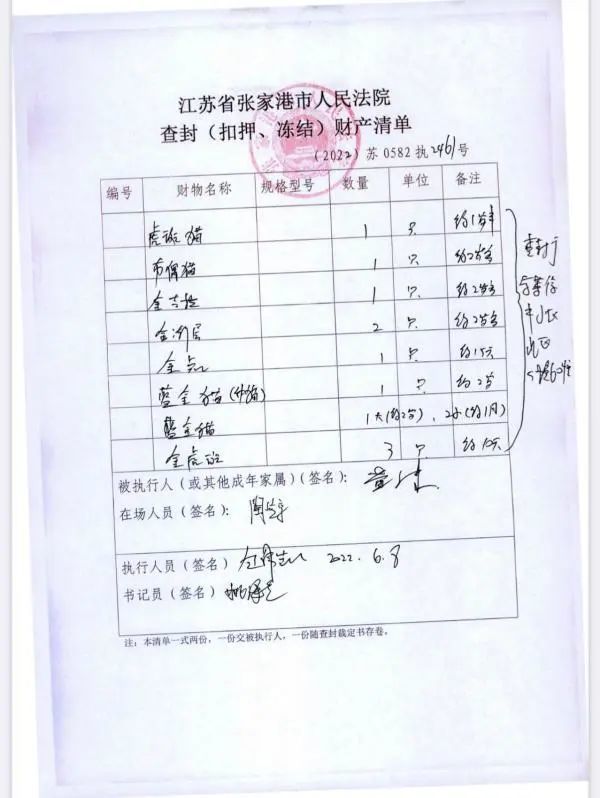 江苏省张家港市人民法院
查封（扣押、冻结）财产清单
（2022）苏 0582 执2461号
编号 财物名称 规格型号 数量 单位 备注
虎斑猫 1 只 约1岁半
布偶猫 1 只 约2岁多
金吉拉 1 只 约2岁多
金渐层 2 只 约2岁多
金点 1 只 约15天
蓝金猫 1 只 约2岁
蓝金猫 1大（约2岁）、2小（约1月）
金虎斑 3 只 约15天
查封于
被执行人（或其他成年家属）（签名）：
在场人员（签名）：
执行人员（签名） 2022.6.8
书记员（签名）
注：本清单一式两份，一份交被执行人，一份随查封裁定书存卷。